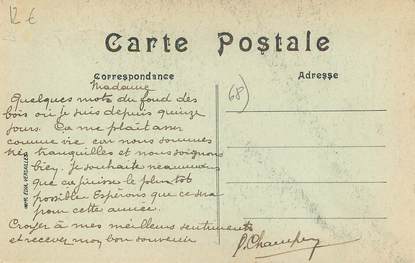 12 €
Carte Postale
Correspondance
Adresse
68)
Madame
Quelques mots du fond des
bois où je suis depuis quinze
jours. Ça me plaît assez
comme vie car nous sommes
très tranquilles et nous soignons
bien. Je souhaite néanmoins
que ça finisse le plus tôt
possible Espérons que ce sera
pour cette année.
Croyez à mes meilleurs sentiments
et recevez mon bon souvenir